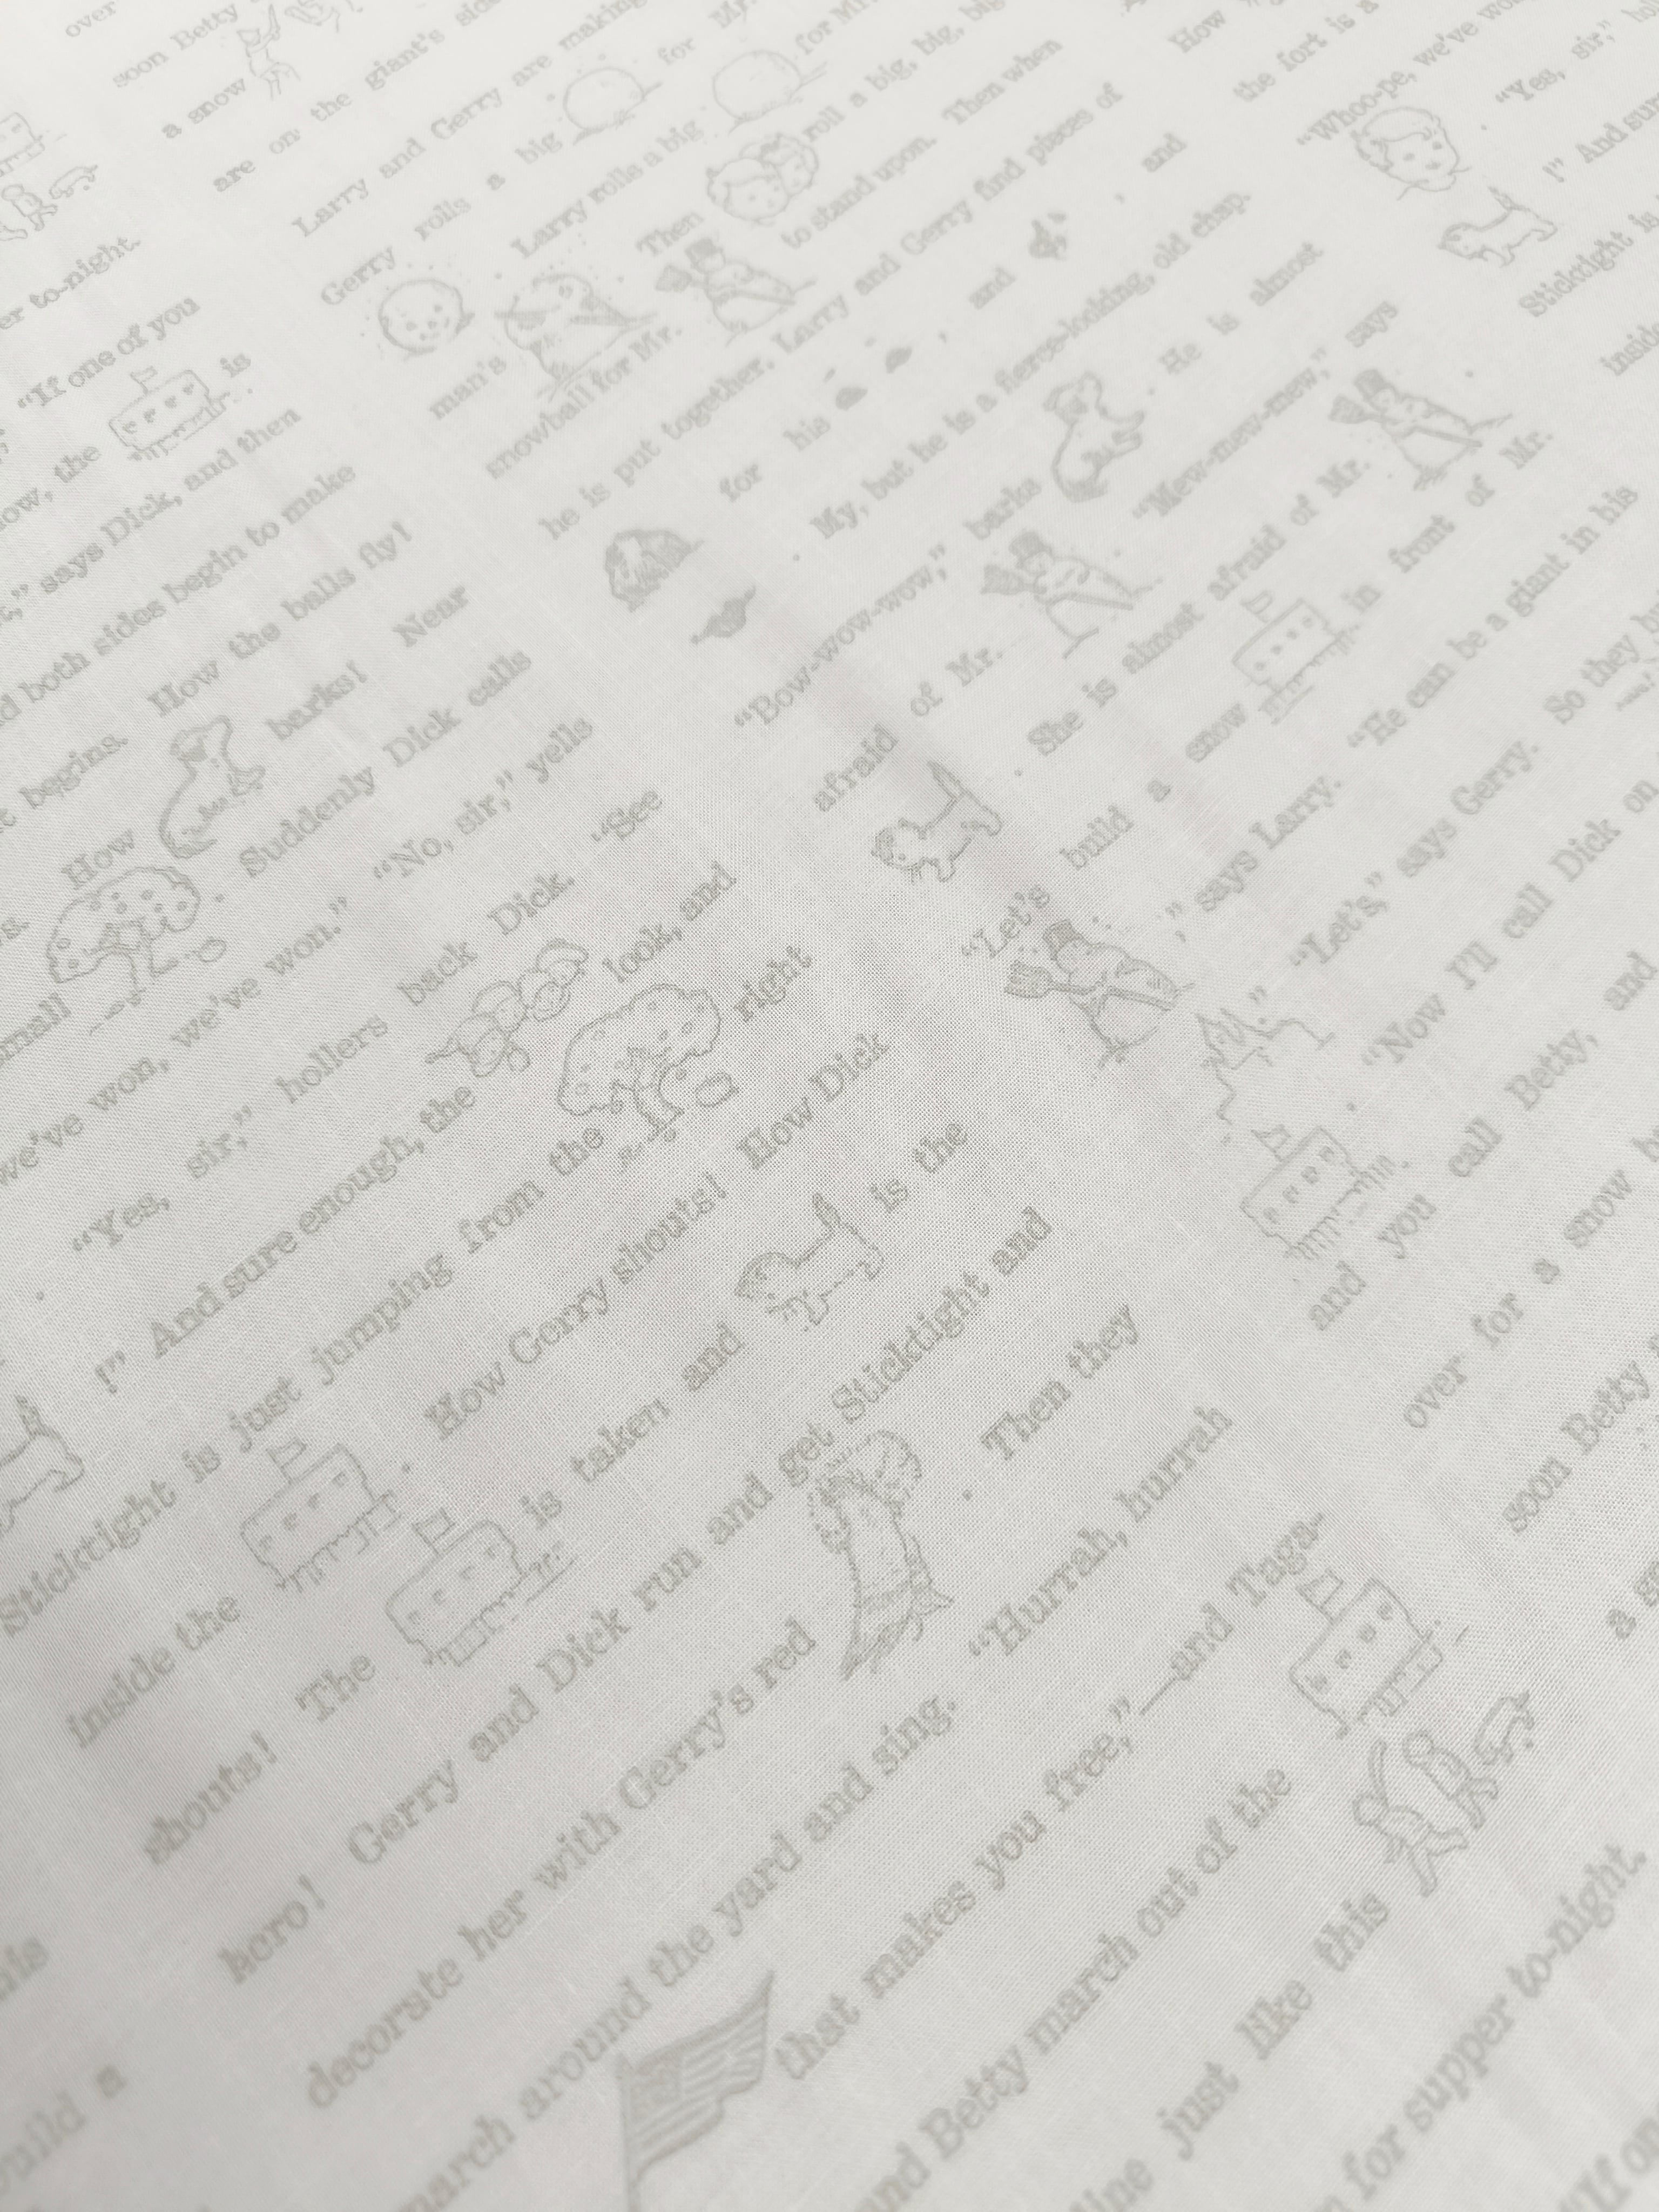 er to-night.
"If one of you
now, the is
," says Dick, and then
both sides begin to make
begins. How the balls fly!
How barks! Near
small . Suddenly Dick calls
we've won, we've won." "No, sir," yells
"Yes, sir," hollers back Dick. "See
!" And sure enough, the look, and
Sticktight is just jumping from the right
inside the . How Gerry shouts! How Dick
shouts! The is taken and is the
hero! Gerry and Dick run and get Sticktight and
decorate her with Gerry's red . Then they
march around the yard and sing. "Hurrah, hurrah
that makes you free,"—and Taga-
and Betty march out of the
line just like this
for supper to-night.
"If on
over
soon Betty
a snow
are on the giant's side
Larry and Gerry are making for Mr.
Gerry rolls a big for Mr.
man's Larry rolls a big
snowball for Mr. Then roll a big, big, big
he is put together. to stand upon. Then when
Larry and Gerry find pieces of
for his , and , and
. My, but he is a fierce-looking, old chap.
"Bow-wow-wow," barks . He is almost
afraid of Mr. "Mew-mew-mew," says
. She is almost afraid of Mr.
"Let's build a snow in front of Mr.
," says Larry. "He can be a giant in his
." "Let's," says Gerry. So they
. "Now I'll call Dick on
and you call Betty, and
over for a snow
soon Betty
a
How
the fort is a
"Whoo-pe, we've
. "Yes, sir,"
!" And sure
Sticktight is
inside
build a